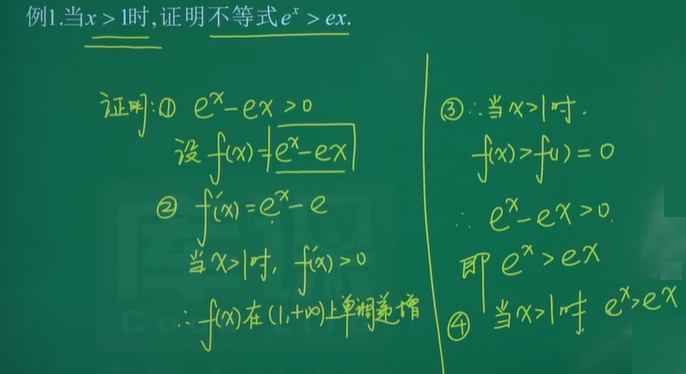 例1.当x > 1时,证明不等式eˣ > ex.
证明:① eˣ-ex>0
设 f(x)=eˣ-ex
② f′(x)=eˣ-e
当x>1时, f′(x)>0
∴f(x)在(1,+∞)上单调递增
③∴当x>1时.
f(x)>f(1)=0
∴ eˣ-ex>0.
即 eˣ>ex
④ 当x>1时 eˣ>ex
库课